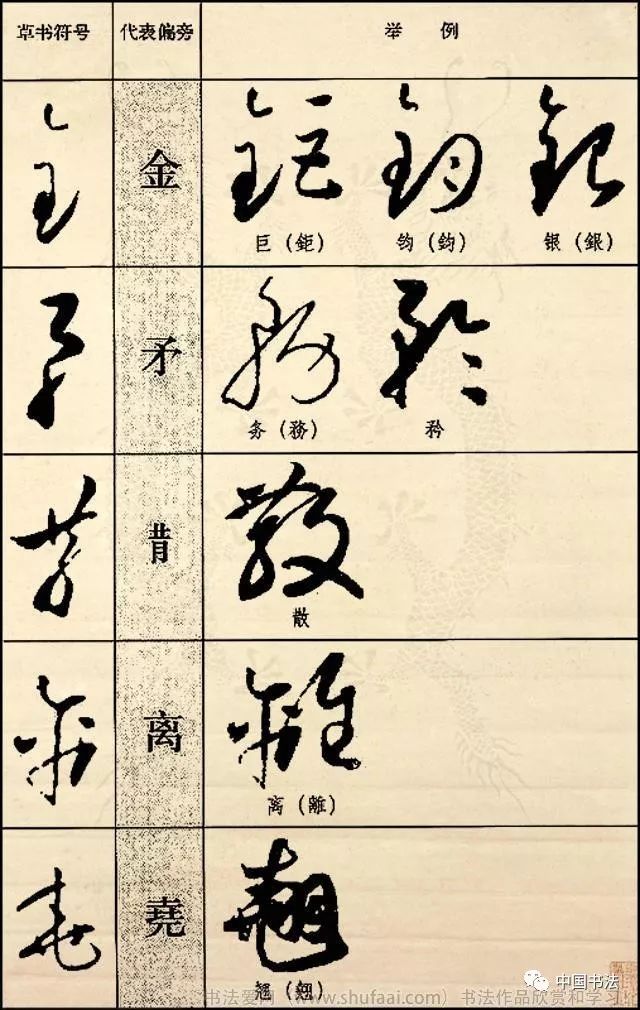 草书符号 代表偏旁 举例
金
巨（鉅） 钧（鈞） 银（銀）
矛
务（務） 矜
散
离
离（離）
堯
翘（翹）
中国书法
书法爱网（www.shufaai.com）书法作品欣赏和学习